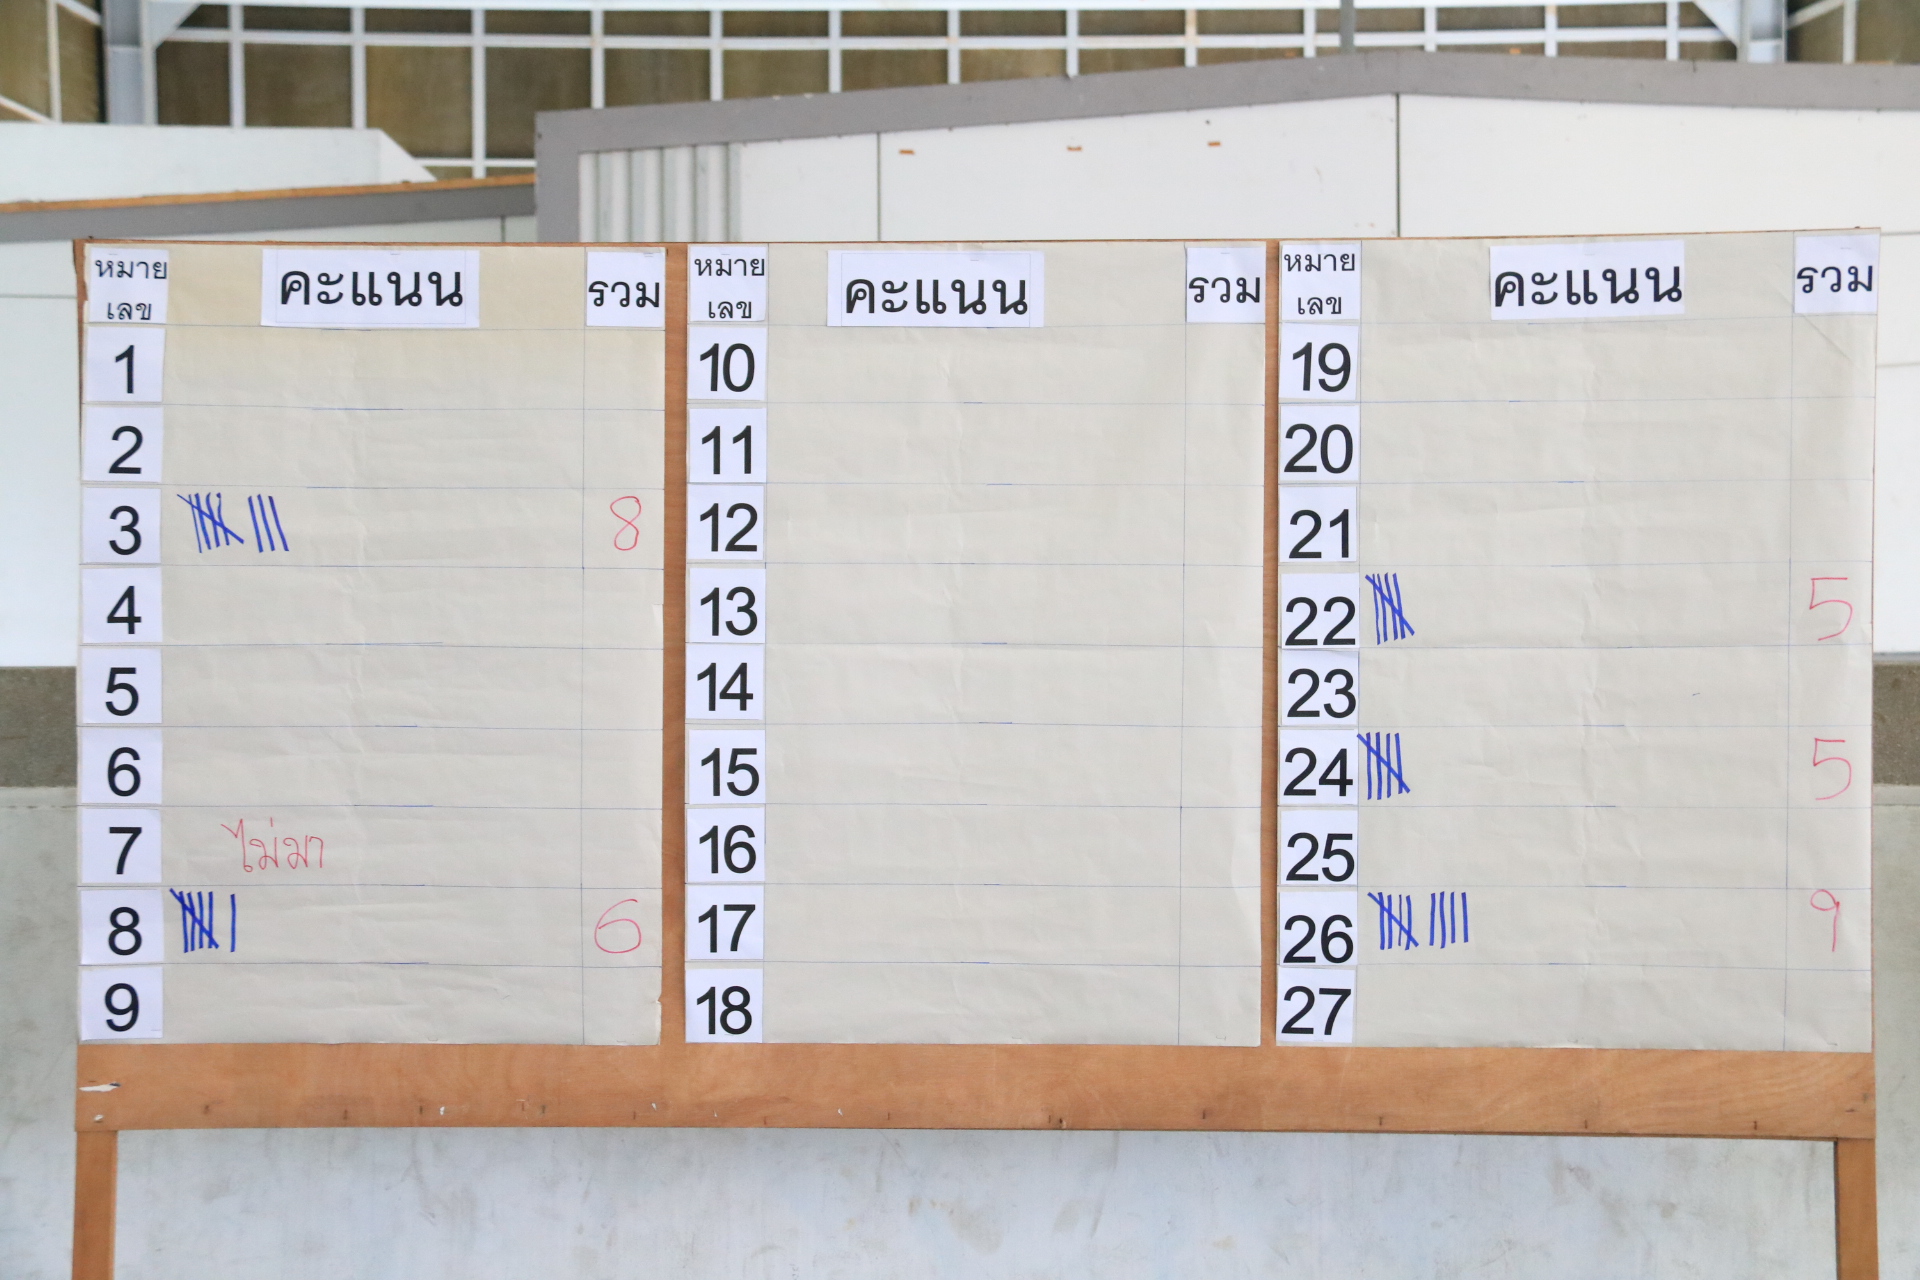 หมายเลข คะแนน รวม
1
2
3 8
4
5
6
7 ไม่มา
8 6
9
หมายเลข คะแนน รวม
10
11
12
13
14
15
16
17
18
หมายเลข คะแนน รวม
19
20
21
22 5
23
24 5
25
26 9
27